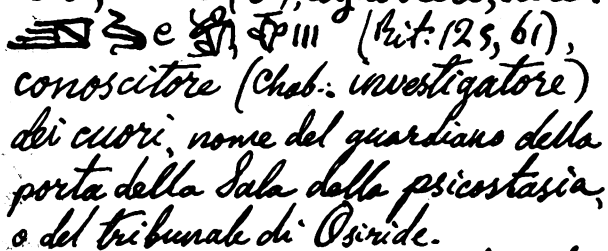 e (Rit. 125, 61),
conoscitore (Chab.: investigatore)
dei cuori, nome del guardiano della
porta della Sala della psicostasia,
o del tribunale di Osiride.